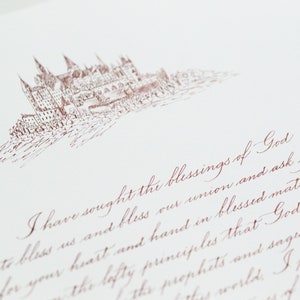 I have sought the blessings of God
to bless us and bless our union and ask
for your heart and hand in blessed mat
the lofty principles that God
the prophets and sages
this world, I